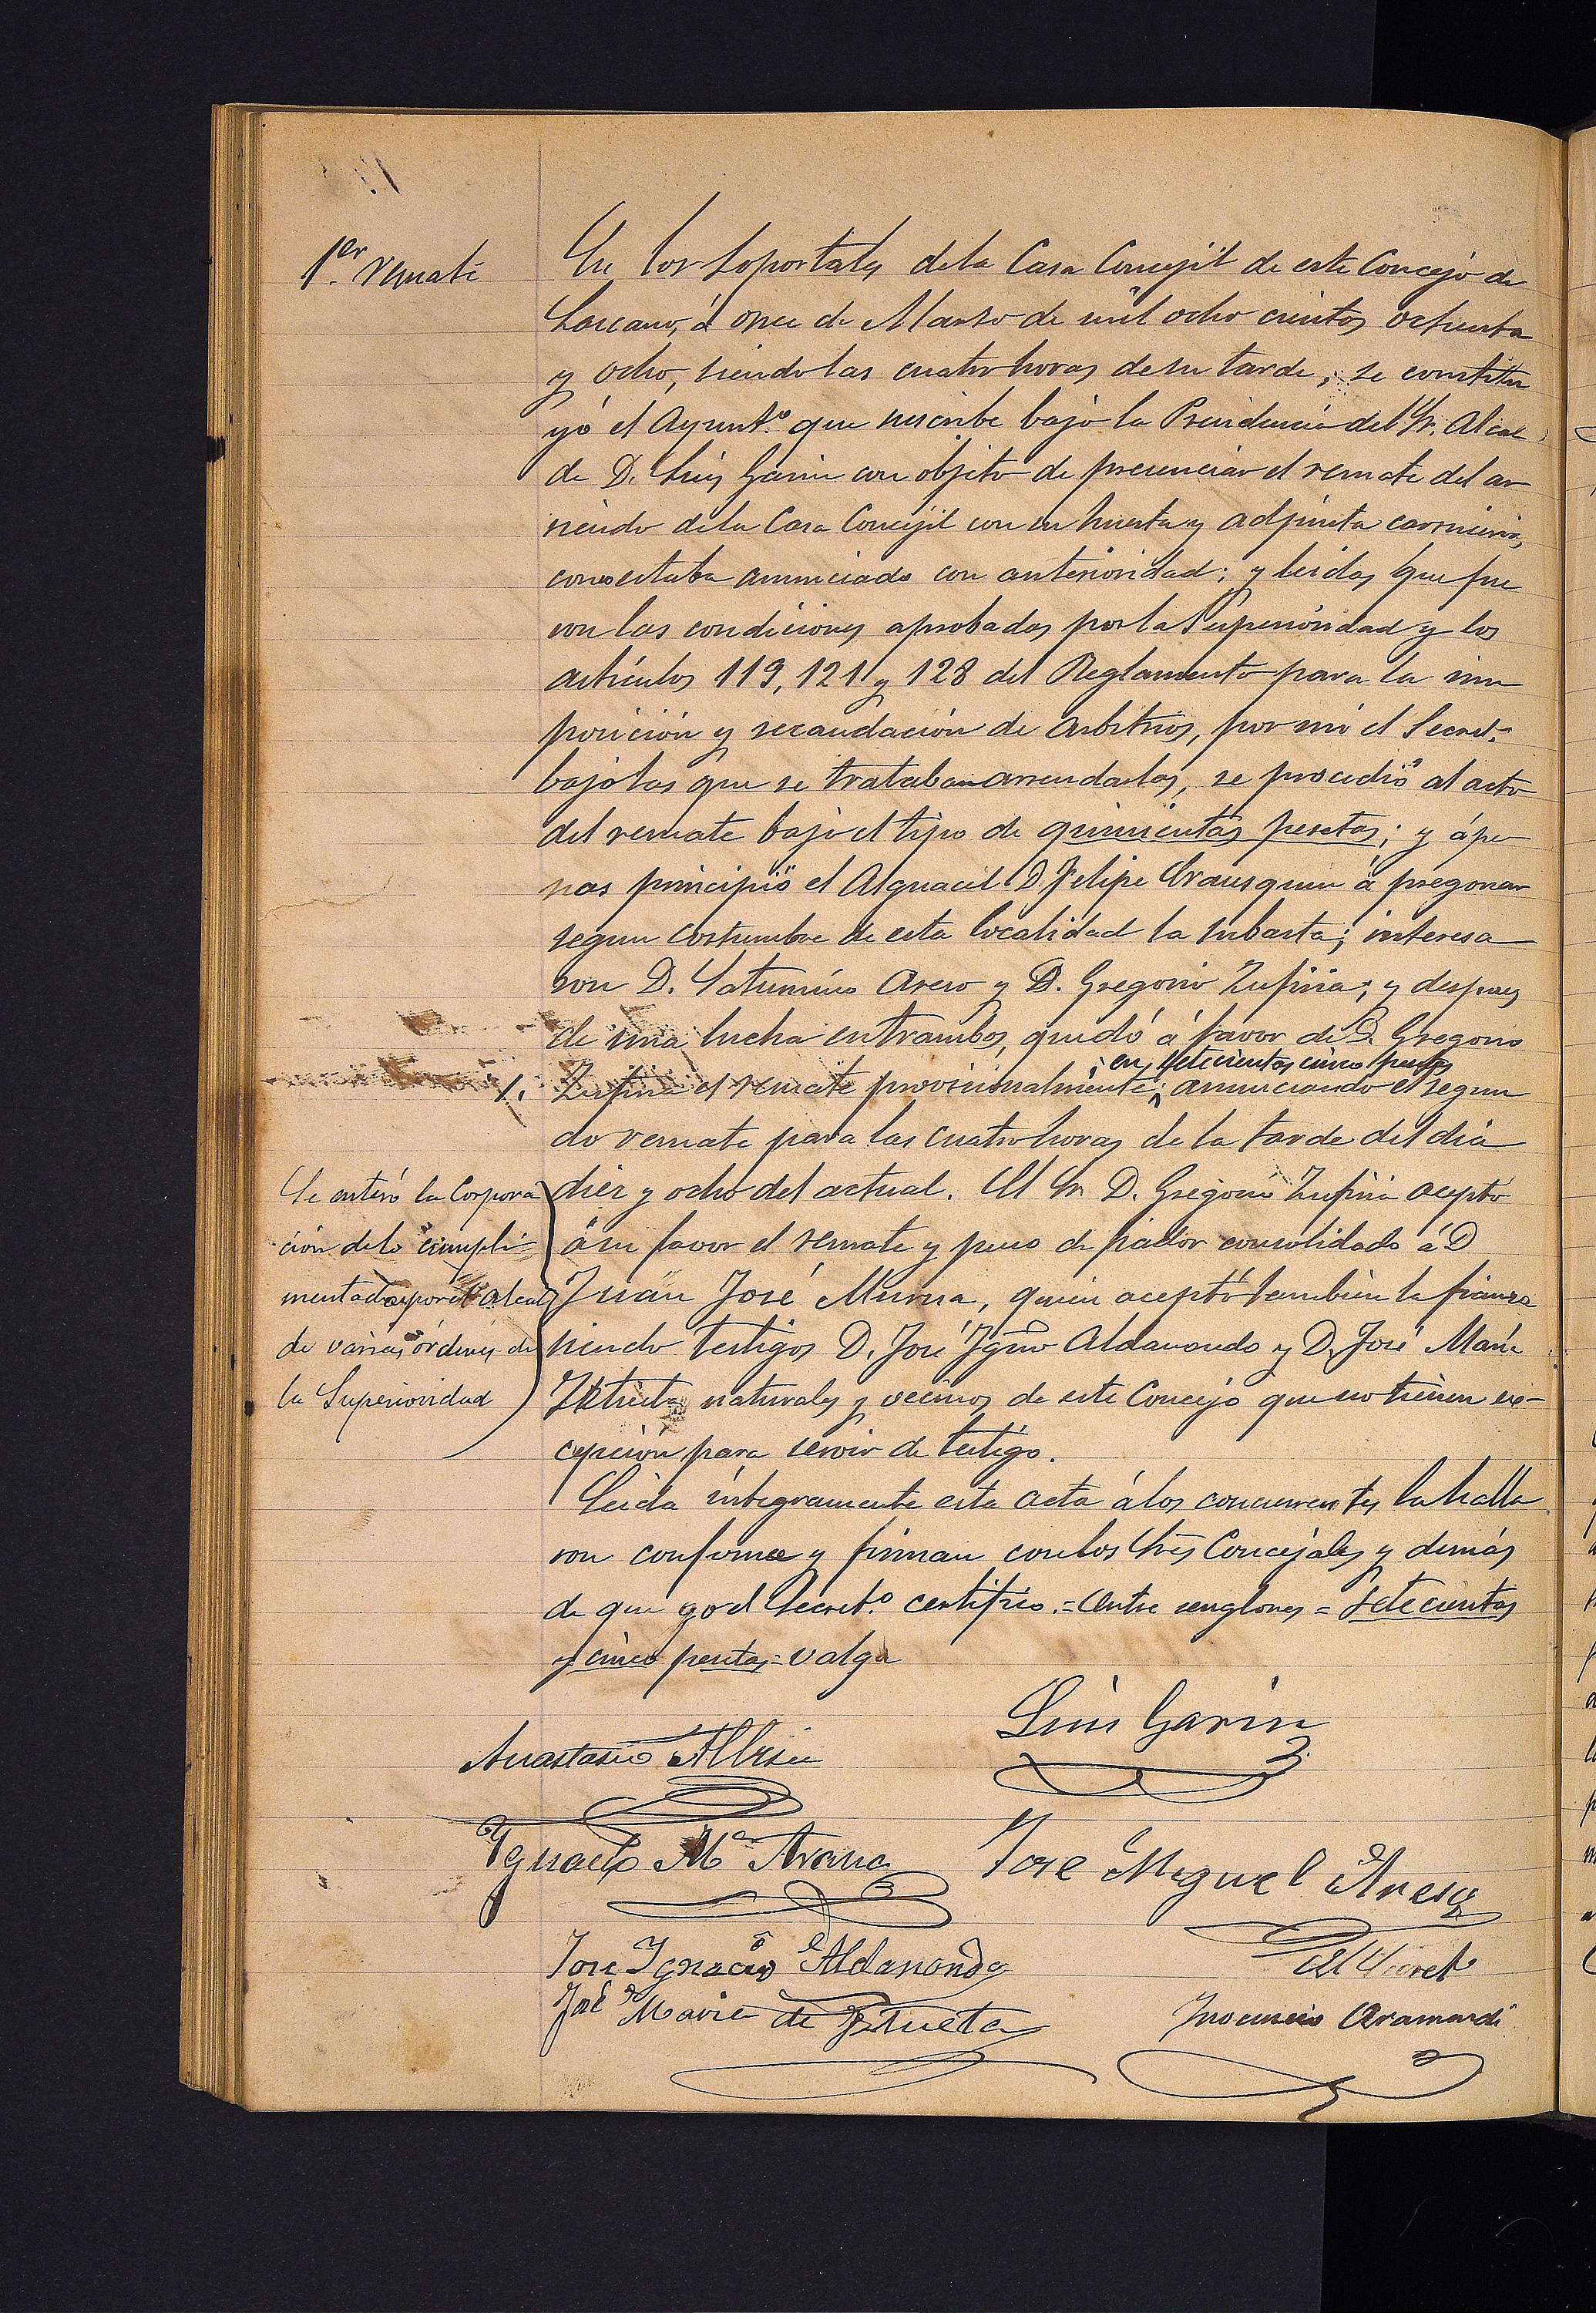 1.er remate
En los soportales de la Casa Concejil de este Concejo de
Lazcano, á once de Marzo de mil ocho cientos ochenta
y ocho, siendo las cuatro horas de su tarde, se constitu
yó el Ayunt.o que suscribe bajo la Presidencia del Sr. Alcal
de D. Luis Garin con objeto de presenciar el remate del ar
riendo de la Casa Concejil con su huerta y adjunta carniceria,
como estaba anunciado con anterioridad; y leidas que fue
ron las condiciones aprobadas por la Superioridad y los
artículos 119, 121 y 128 del Reglamento para la im
posición y recaudación de arbitrios, por mi el Secret.o
bajo las que se trataban arrendarlas, se procedió al acto
del remate bajo el tipo de quinientas pesetas; y ápe
nas principió el Alguacil D. Felipe Urausquin á pregonar
segun costumbre de esta localidad la subasta; interesa
ron D. Saturnino Arero y D. Gregorio Zufiria; y despues
de una lucha entrambos, quedó á favor de D. Gregorio
en setecientas cinco pesetas
Zufiria el remate provisionalmente; anunciando el segun
do remate para las cuatro horas de la tarde del dia
diez y ocho del actual. El Sr. D. Gregorio Zufiria aceptó
á su favor el remate y puso de fiador consolidado á D
Juan José Murua, quien aceptó tambien la fianza
siendo testigos D. José Ign.o Aldanondo y D. José Maria
Iztueta naturales y vecinos de este Concejo que no tienen ex-
cepción para servir de testigo.
Se enteró la Corpora
ción de lo cumpli
mentado por el Alcal
de varias órdenes de
la Superioridad
Leida íntegramente esta acta á los concurrentes la halla
ron conforme y firman con los Sres Concejales y demás
de que yo el Secret.o certifico.=Entre renglones=setecientas
y cinco pesetas=valga
Luis Garin
Anastasio Albisu
Ygnacio M.a Arana
José Miguel Aresa
José Ignacio Aldanondo
El Secret.o
José Maria de Iztueta
Inocencio Aramendi